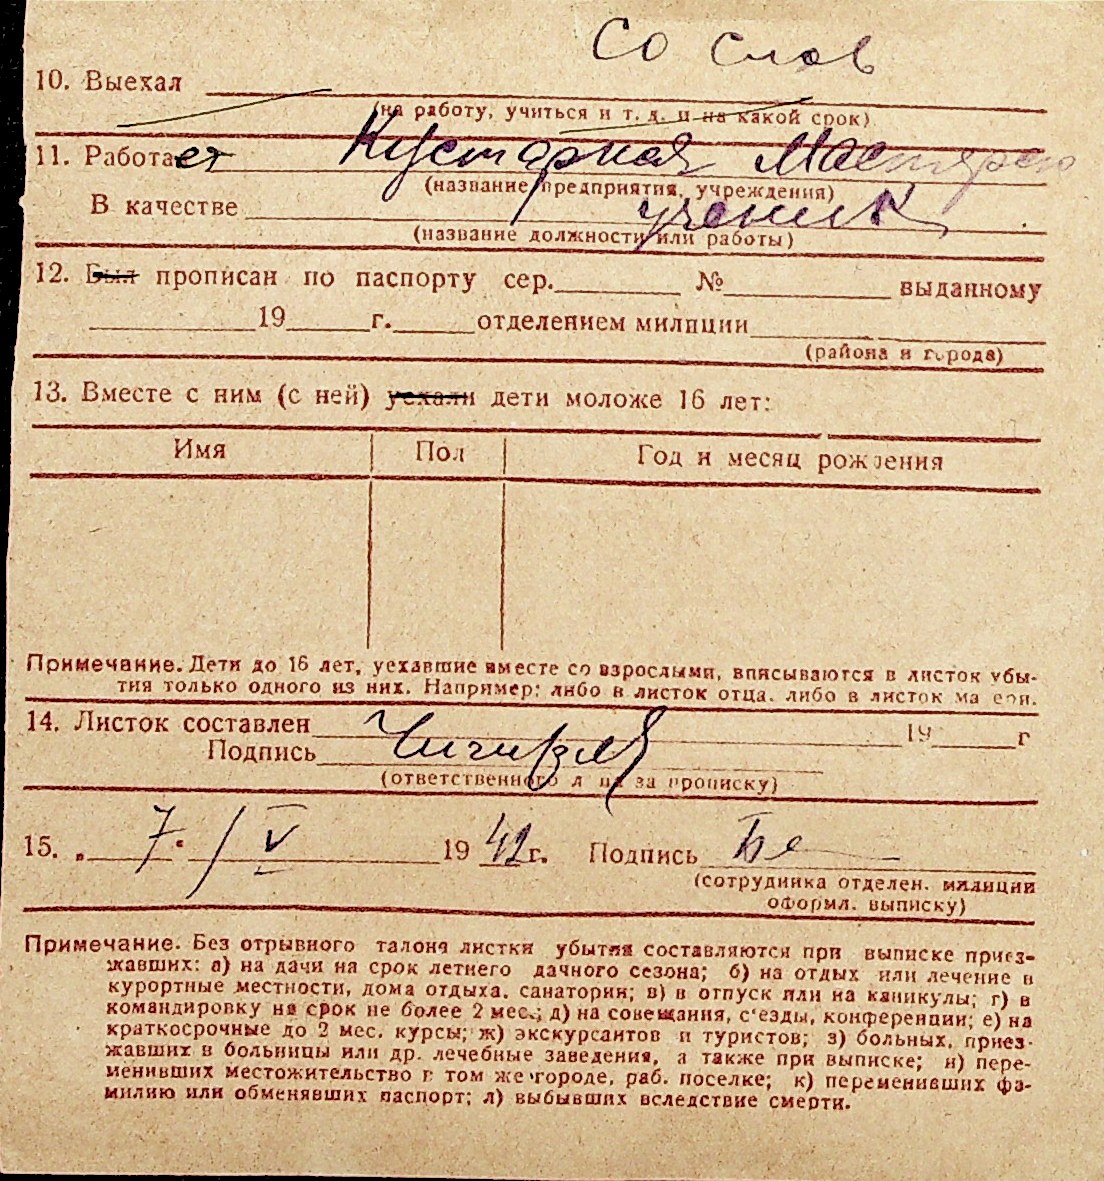 Со слов
10. Выехал
(на работу, учиться и т. д. и на какой срок)
11. Работает Кустарная Мастерск
(название предприятия, учреждения)
В качестве ученик
(название должности или работы)
12. Был прописан по паспорту сер. № выданному
19 г. отделением милиции
(района и города)
13. Вместе с ним (с ней) уехали дети моложе 16 лет:
Имя Пол Год и месяц рождения
Примечание. Дети до 16 лет, уехавшие вместе со взрослыми, вписываются в листок убы-
тия только одного из них. Например: либо в листок отца, либо в листок матери.
14. Листок составлен 19 г
Подпись
(ответственного лица за прописку)
15. „7" / V 1942 г. Подпись
(сотрудника отделен. милиции
оформл. выписку)
Примечание. Без отрывного талона листки убытия составляются при выписке приез-
жавших: а) на дачи на срок летнего дачного сезона; б) на отдых или лечение в
курортные местности, дома отдыха, санатории; в) в отпуск или на каникулы; г) в
командировку на срок не более 2 мес.; д) на совещания, с'езды, конференции; е) на
краткосрочные до 2 мес. курсы; ж) экскурсантов и туристов; з) больных, приез-
жавших в больницы или др. лечебные заведения, а также при выписке; и) пере-
менивших местожительство в том же городе, раб. поселке; к) переменивших фа-
милию или обменявших паспорт; л) выбывших вследствие смерти.